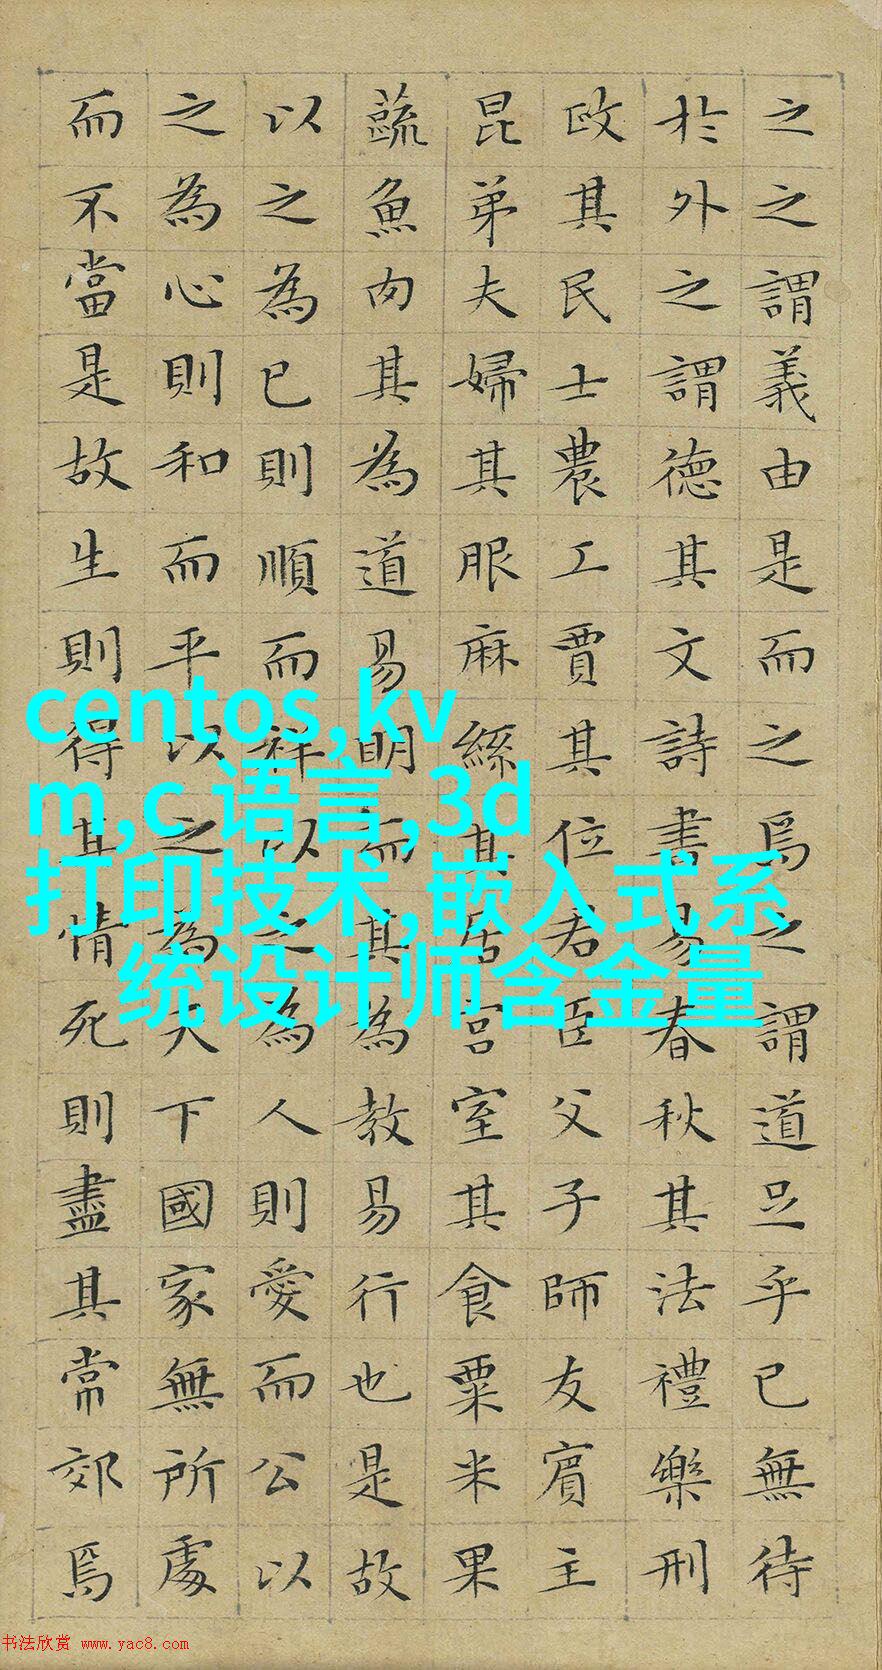 之之謂義由是而之焉之謂道足乎已無待
於外之謂德其文詩書易春秋其法禮樂刑
政其民士農工賈其位君臣父子師友賔主
昆弟夫婦其服麻絲其居宮室其食粟米果
蔬魚肉其為道易明而其為教易行也是故
以之為已則順而祥以之為人則愛而公以
之為心則和而平以之為天下國家無所處
而不當是故生則得其情死則盡其常郊焉
centos,kv
m,c语言,3d
打印技术,嵌入式系
统设计师含金量
书法欣赏 www.yac8.com